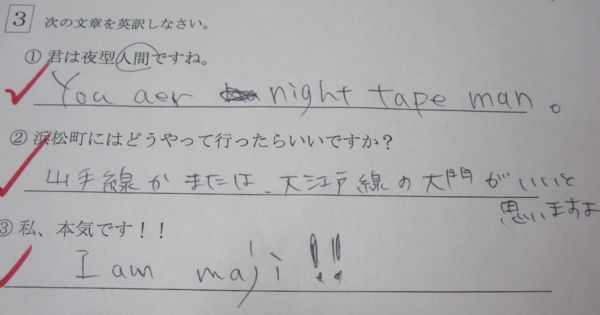 3 次の文章を英訳しなさい。
① 君は夜型人間ですね。
You aer night tape man。
② 浜松町にはどうやって行ったらいいですか?
山手線かまたは、大江戸線の大門がいいと
思いますよ
③ 私、本気です!!
I am maji!!